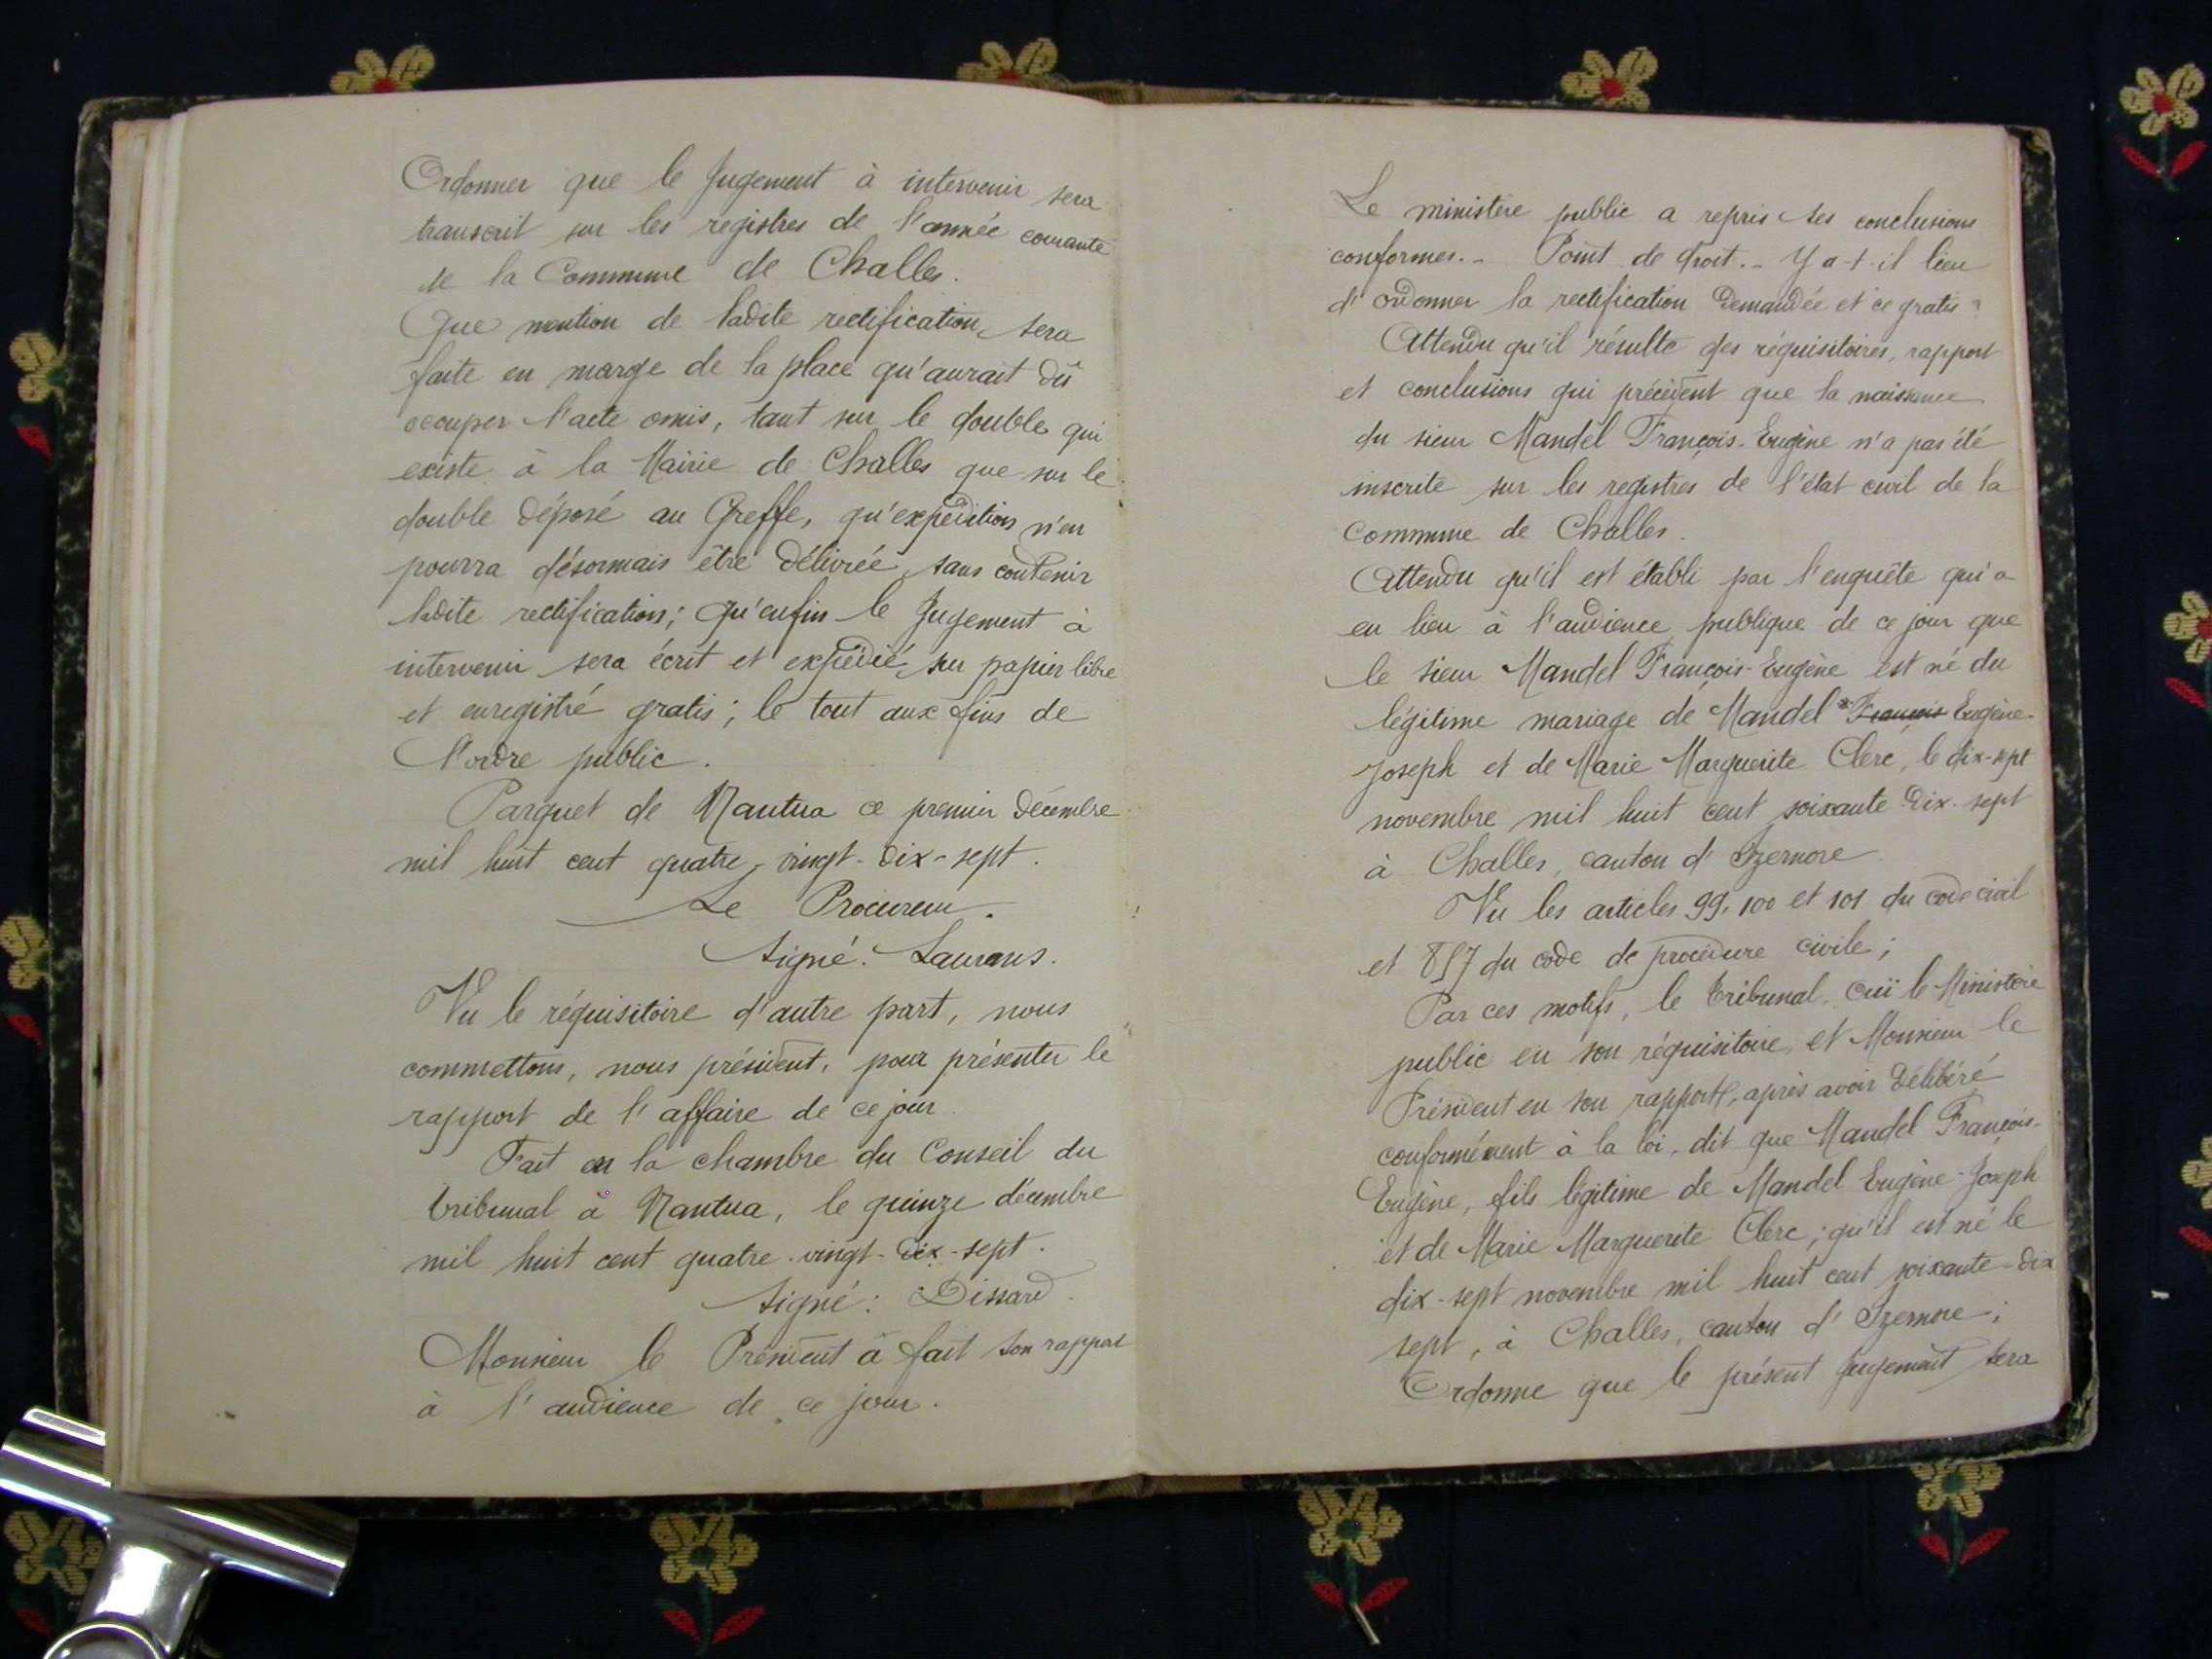 Ordonner que le Jugement à intervenir sera
transcrit sur les registres de l'année courante
de la Commune de Challes.
Que mention de ladite rectification sera
faite en marge de la place qu'aurait dû
occuper l'acte omis, tant sur le double qui
existe à la Mairie de Challes que sur le
double déposé au Greffe, qu'expédition n'en
pourra désormais être délivrée sans contenir
ladite rectification; qu'enfin le Jugement à
intervenir sera écrit et expédié sur papier libre
et enregistré gratis; le tout aux fins de
l'ordre public.
Parquet de Nantua ce premier décembre
mil huit cent quatre-vingt-dix-sept.
Le Procureur.
Signé: Laurans.
Vu le réquisitoire d'autre part, nous
commettons, nous président, pour présenter le
rapport de l'affaire de ce jour.
Fait en la chambre du Conseil du
tribunal à Nantua, le quinze décembre
mil huit cent quatre-vingt-dix-sept.
Signé: Dissard.
Monsieur le Président à fait son rapport
à l'audience de ce jour.
Le ministère public a repris ses conclusions
conformes. - Point de droit. - Y a-t-il lieu
d'ordonner la rectification demandée et ce gratis?
Attendu qu'il résulte des réquisitoires, rapport
et conclusions qui précèdent que la naissance
du sieur Mandel François-Eugène n'a pas été
inscrite sur les registres de l'état civil de la
commune de Challes.
Attendu qu'il est établi par l'enquête qui a
eu lieu à l'audience publique de ce jour que
le sieur Mandel François-Eugène est né du
légitime mariage de Mandel * François Eugène-
Joseph et de Marie Marguerite Clerc, le dix-sept
novembre mil huit cent soixante dix-sept
à Challes, canton d'Izernore
Vu les articles 99, 100 et 101 du code civil
et 857 du code de procédure civile;
Par ces motifs, le tribunal, ouï le Ministère
public en son réquisitoire et Monsieur le
Président en son rapport, après avoir délibéré
conformément à la loi, dit que Mandel François-
Eugène, fils légitime de Mandel Eugène-Joseph
et de Marie Marguerite Clerc; qu'il est né le
dix-sept novembre mil huit cent soixante-dix
sept, à Challes, canton d'Izernore;
Ordonne que le présent jugement sera